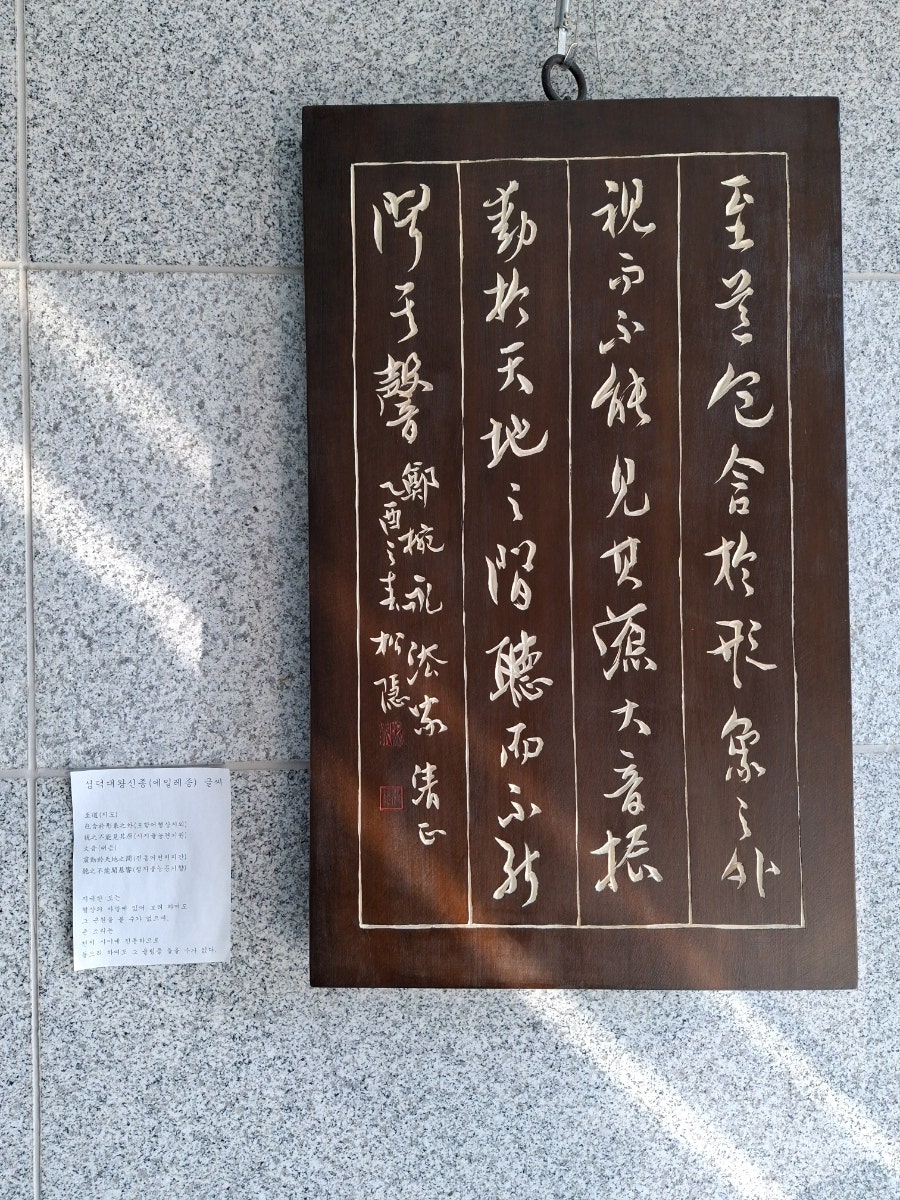 至道包含於形象之外
視而不能見其源大音振
動於天地之間聽而不能
聞其
鄭椀永 法家 清正
乙酉之春 松隱
성덕대왕신종(에밀레종) 글씨
至道(지도)
包含於形象之外(포함어형상지외)
視之不能見其原(시지불능견기원)
大音(대음)
震動於天地之間(진동어천지지간)
聽之不能聞其響(청지불능문기향)
지극한 도는
형상의 이상에 있어 보려 하여도
그 근원을 볼 수가 없으며,
큰 소리는
천지 사이에 진동하므로
들으려 하여도 그 울림을 들을 수가 없다.